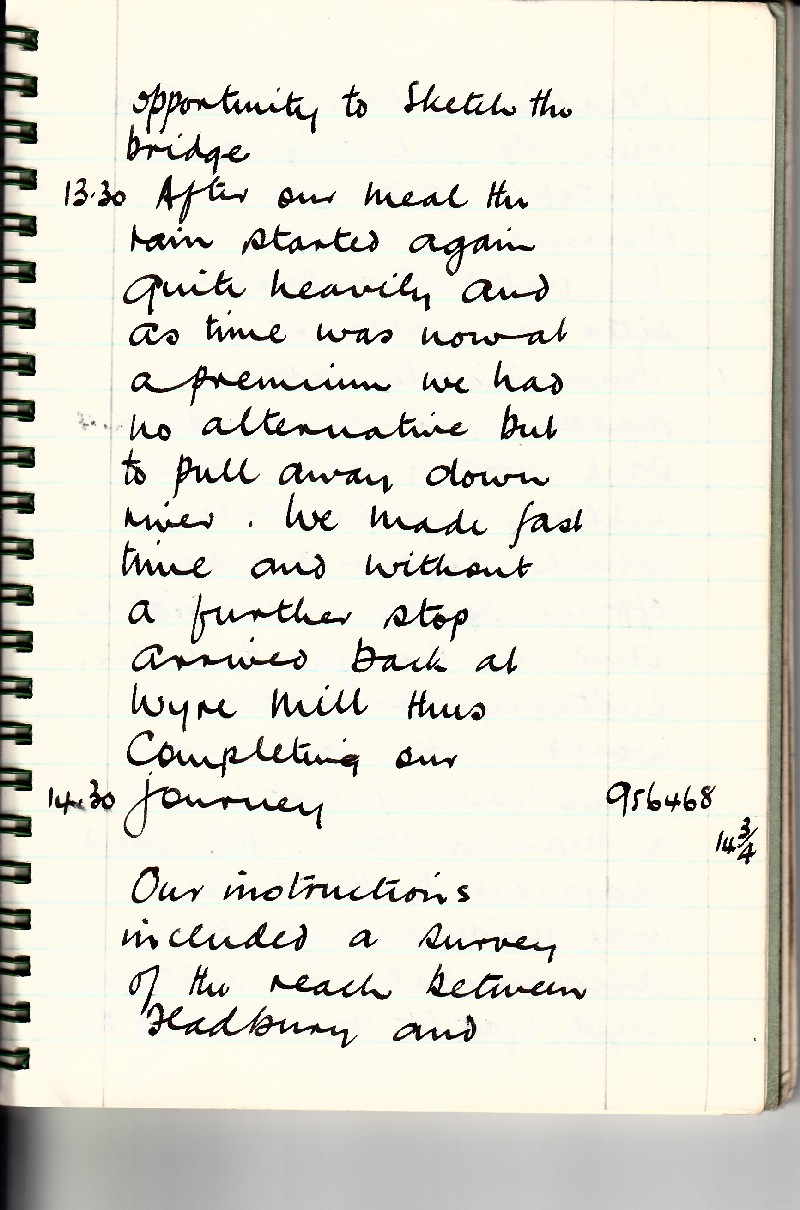 opportunity to sketch the
bridge
13.30 After our meal the
rain started again
quite heavily and
as time was now at
a premium we had
no alternative but
to pull away down
river. We made fast
time and without
a further stop
arrived back at
Wyre Mill thus
Completing our
14.30 journey 956468
14 3/4
Our instructions
included a survey
of the reach between
Hadbury and